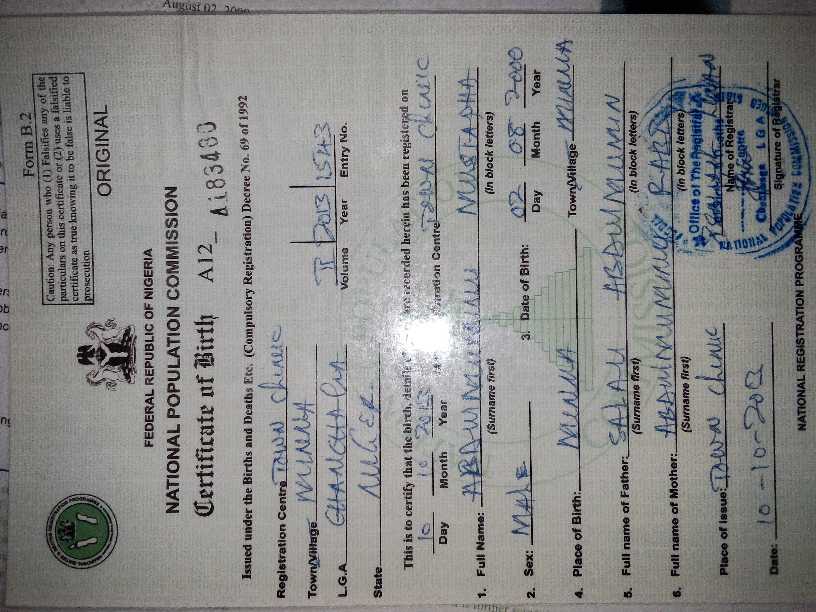 August 02, 2000
Form B.2
Caution: Any person who (1) Falsifies any of the
particulars on this certificate or (2) uses a falsified
certificate as true knowing it to be false is liable to
prosecution
ORIGINAL
FEDERAL REPUBLIC OF NIGERIA
NATIONAL POPULATION COMMISSION
Certificate of Birth A12- Ai83480
Issued under the Births and Deaths Etc. (Compulsory Registration) Decree No. 69 of 1992
Registration Centre TOWN Clinic
Town/Village MINNA
L.G.A CHANCHAGA II 2013 15143
Volume Year Entry No.
State NIGER
This is to certify that the birth, details of are recorded herein has been registered on
10 10 2013 Registration Centre TOWN Clinic
Day Month Year
1. Full Name: ABDULMUMINU MUSTAPHA
(Surname first) (In block letters)
2. Sex: MALE 3. Date of Birth: 02 08 2000
Day Month Year
4. Place of Birth: MINNA Town/Village MINNA
5. Full name of Father: SALAU ABDULMUMIN
(Surname first) (In block letters)
6. Full name of Mother: ABDULMUMMUNI RABI
(Surname first) (In block letters)
Office of The Registrar
Place of Issue: TOWN Clinic
Name of Registrar
Chanchaga LGA
Date: 10-10-2013 Signature of Registrar
POPULATION COMMISSION
NATIONAL REGISTRATION PROGRAMME